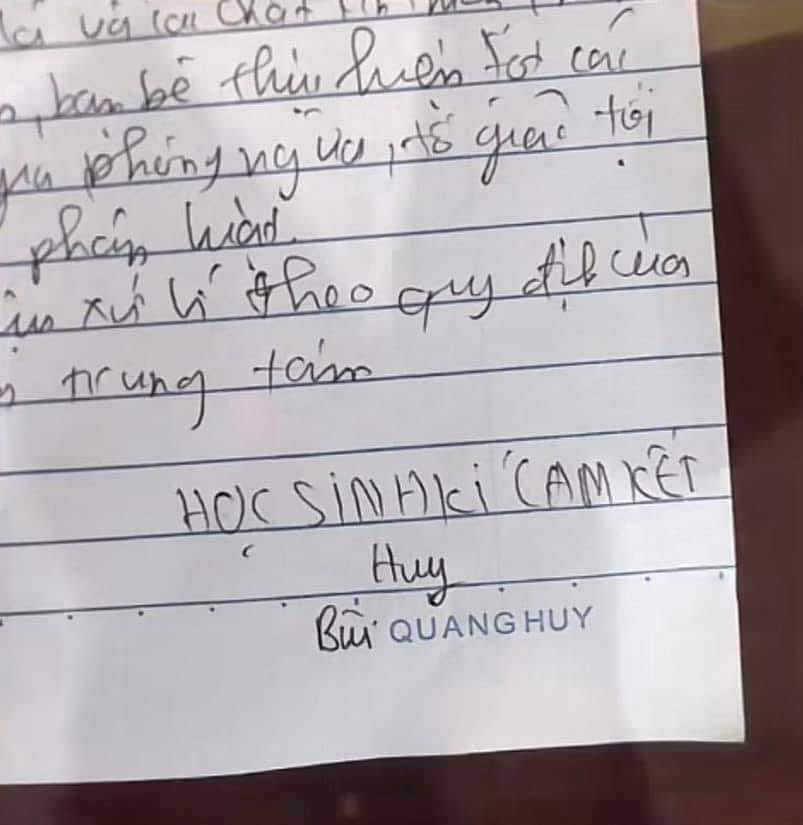 và các chất
, bạn bè thực hiện tốt các
phòng ngừa, tố giác tội
phản luận
xử lí theo quy định của
trung tâm
HỌC SINH KÍ CAM KẾT
Huy
Bùi QUANG HUY